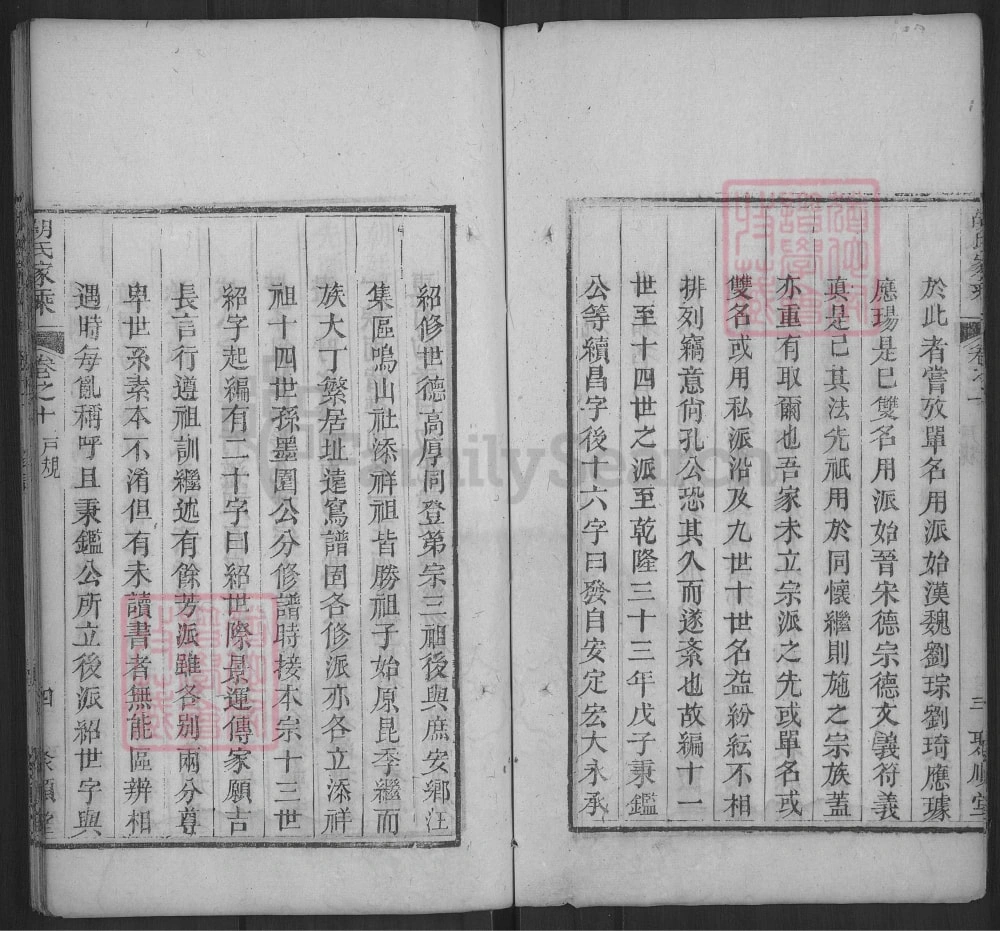 於此者嘗攷單名用派始漢魏劉琮劉琦應璩
應瑒是已雙名用派始晉宋德宗德文義符義
真是已其法先祇用於同懷繼則施之宗族蓋
亦重有取爾也吾家未立宗派之先或單名或
雙名或用私派沿及九世十世名益紛紜不相
排列竊意尙孔公恐其久而遂紊也故編十一
世至十四世之派至乾隆三十三年戊子秉鑑
公等續昌字後十六字曰發自安定宏大永承
三
紹修世德高厚同登第宗三祖後與庶安鄉汪
集區鳴山社添祥祖皆勝祖子始原昆季繼而
族大丁繁居址遠寫譜圖各修派亦各立添祥
祖十四世孫墨園公分修譜時接本宗十三世
紹字起編有二十字曰紹世際景運傳家願吉
長言行遵祖訓繼述有餘芳派雖各別兩分尊
卑世系素本不淆但有未讀書者無能區辨相
遇時每亂稱呼且秉鑑公所立後派紹世字與
胡氏家乘
卷之十
戸規
四
FamilySearch